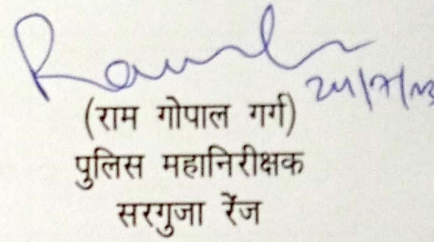 24/7/23
(राम गोपाल गर्ग)
पुलिस महानिरीक्षक
सरगुजा रेंज